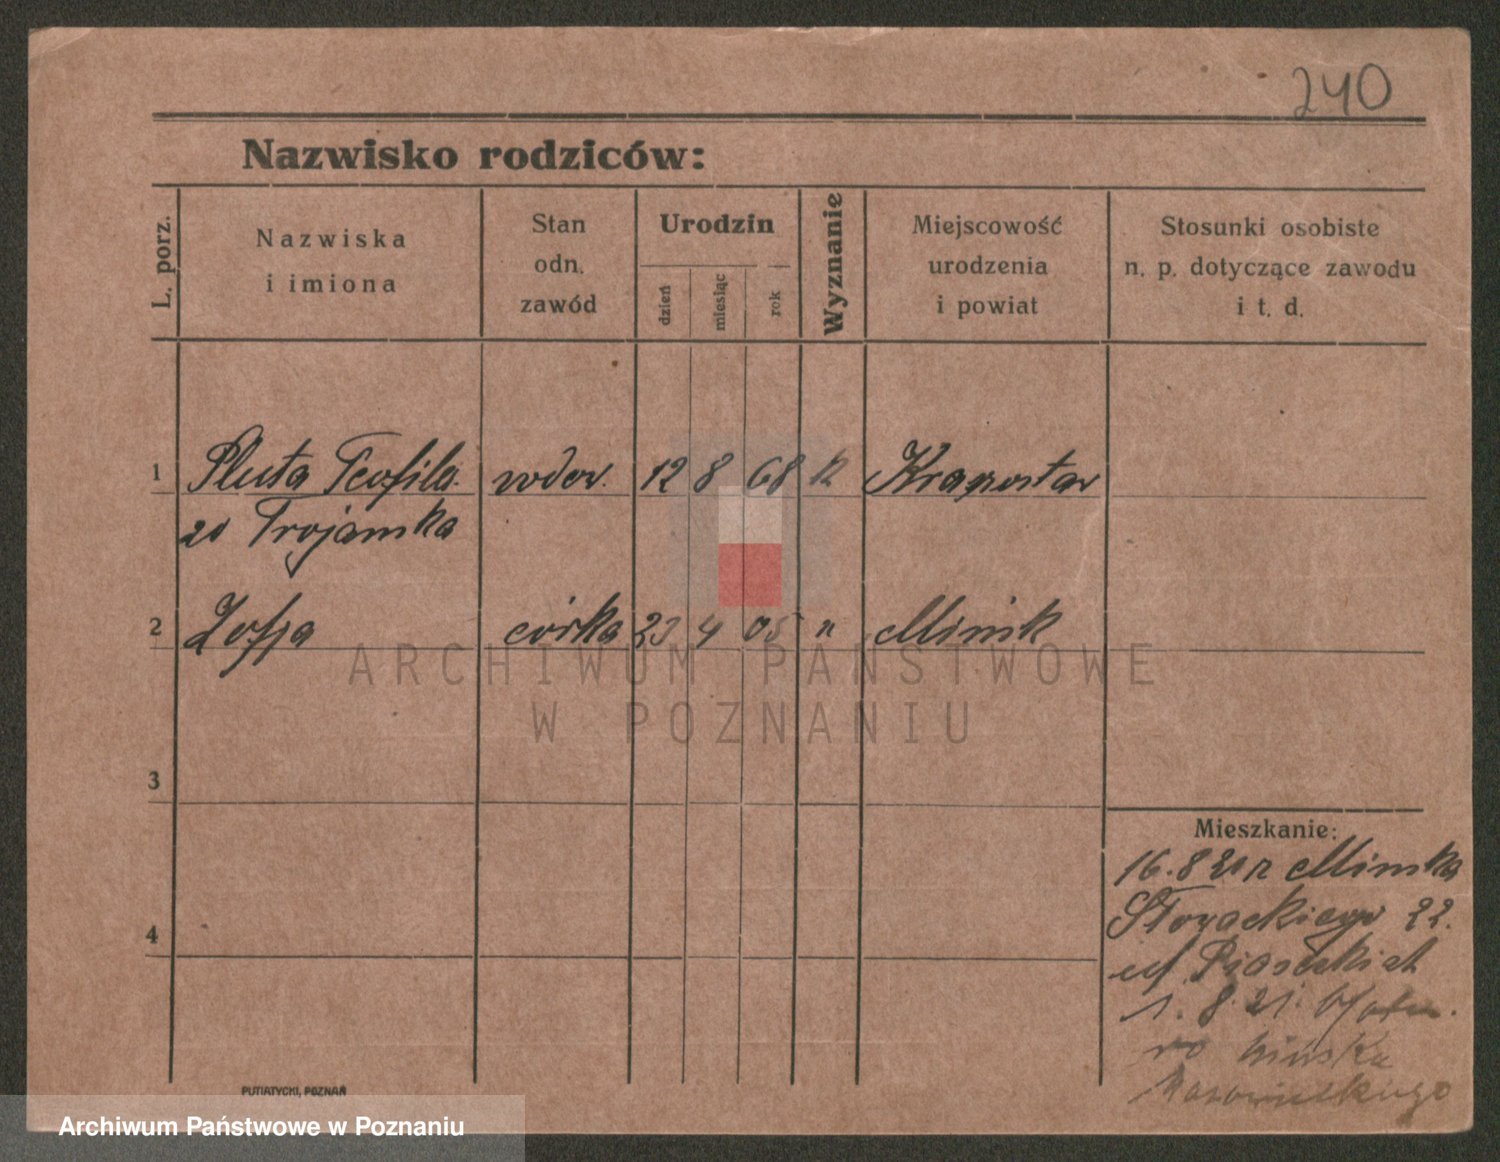 240
Nazwisko rodziców:
L. porz.
Nazwiska
i imiona
Stan
odn.
zawód
Urodzin
dzień
miesiąc
rok
Wyznanie
Miejscowość
urodzenia
i powiat
Stosunki osobiste
n. p. dotyczące zawodu
i t. d.
1 Pluta Teofila wdow. 12 8 68 k Krasnostaw
zd Trojanska
2 Zofja córka 23 4 05 " Minsk
3
4
Mieszkanie:
16.8 20 r Minska
Słowackiego 22.
u Piaseckich
1. 8. 21.
do Minska
Mazowieckiego
PUTIATYCKI, POZNAŃ
ARCHIWUM PAŃSTWOWE
W POZNANIU
Archiwum Państwowe w Poznaniu